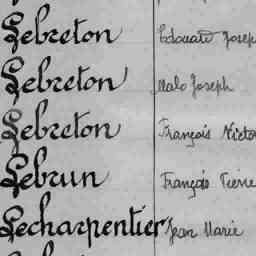 Lebreton Edouard Joseph
Lebreton Malo Joseph
Lebreton François Victo
Lebrun François Pierre
Lecharpentier Jean Marie